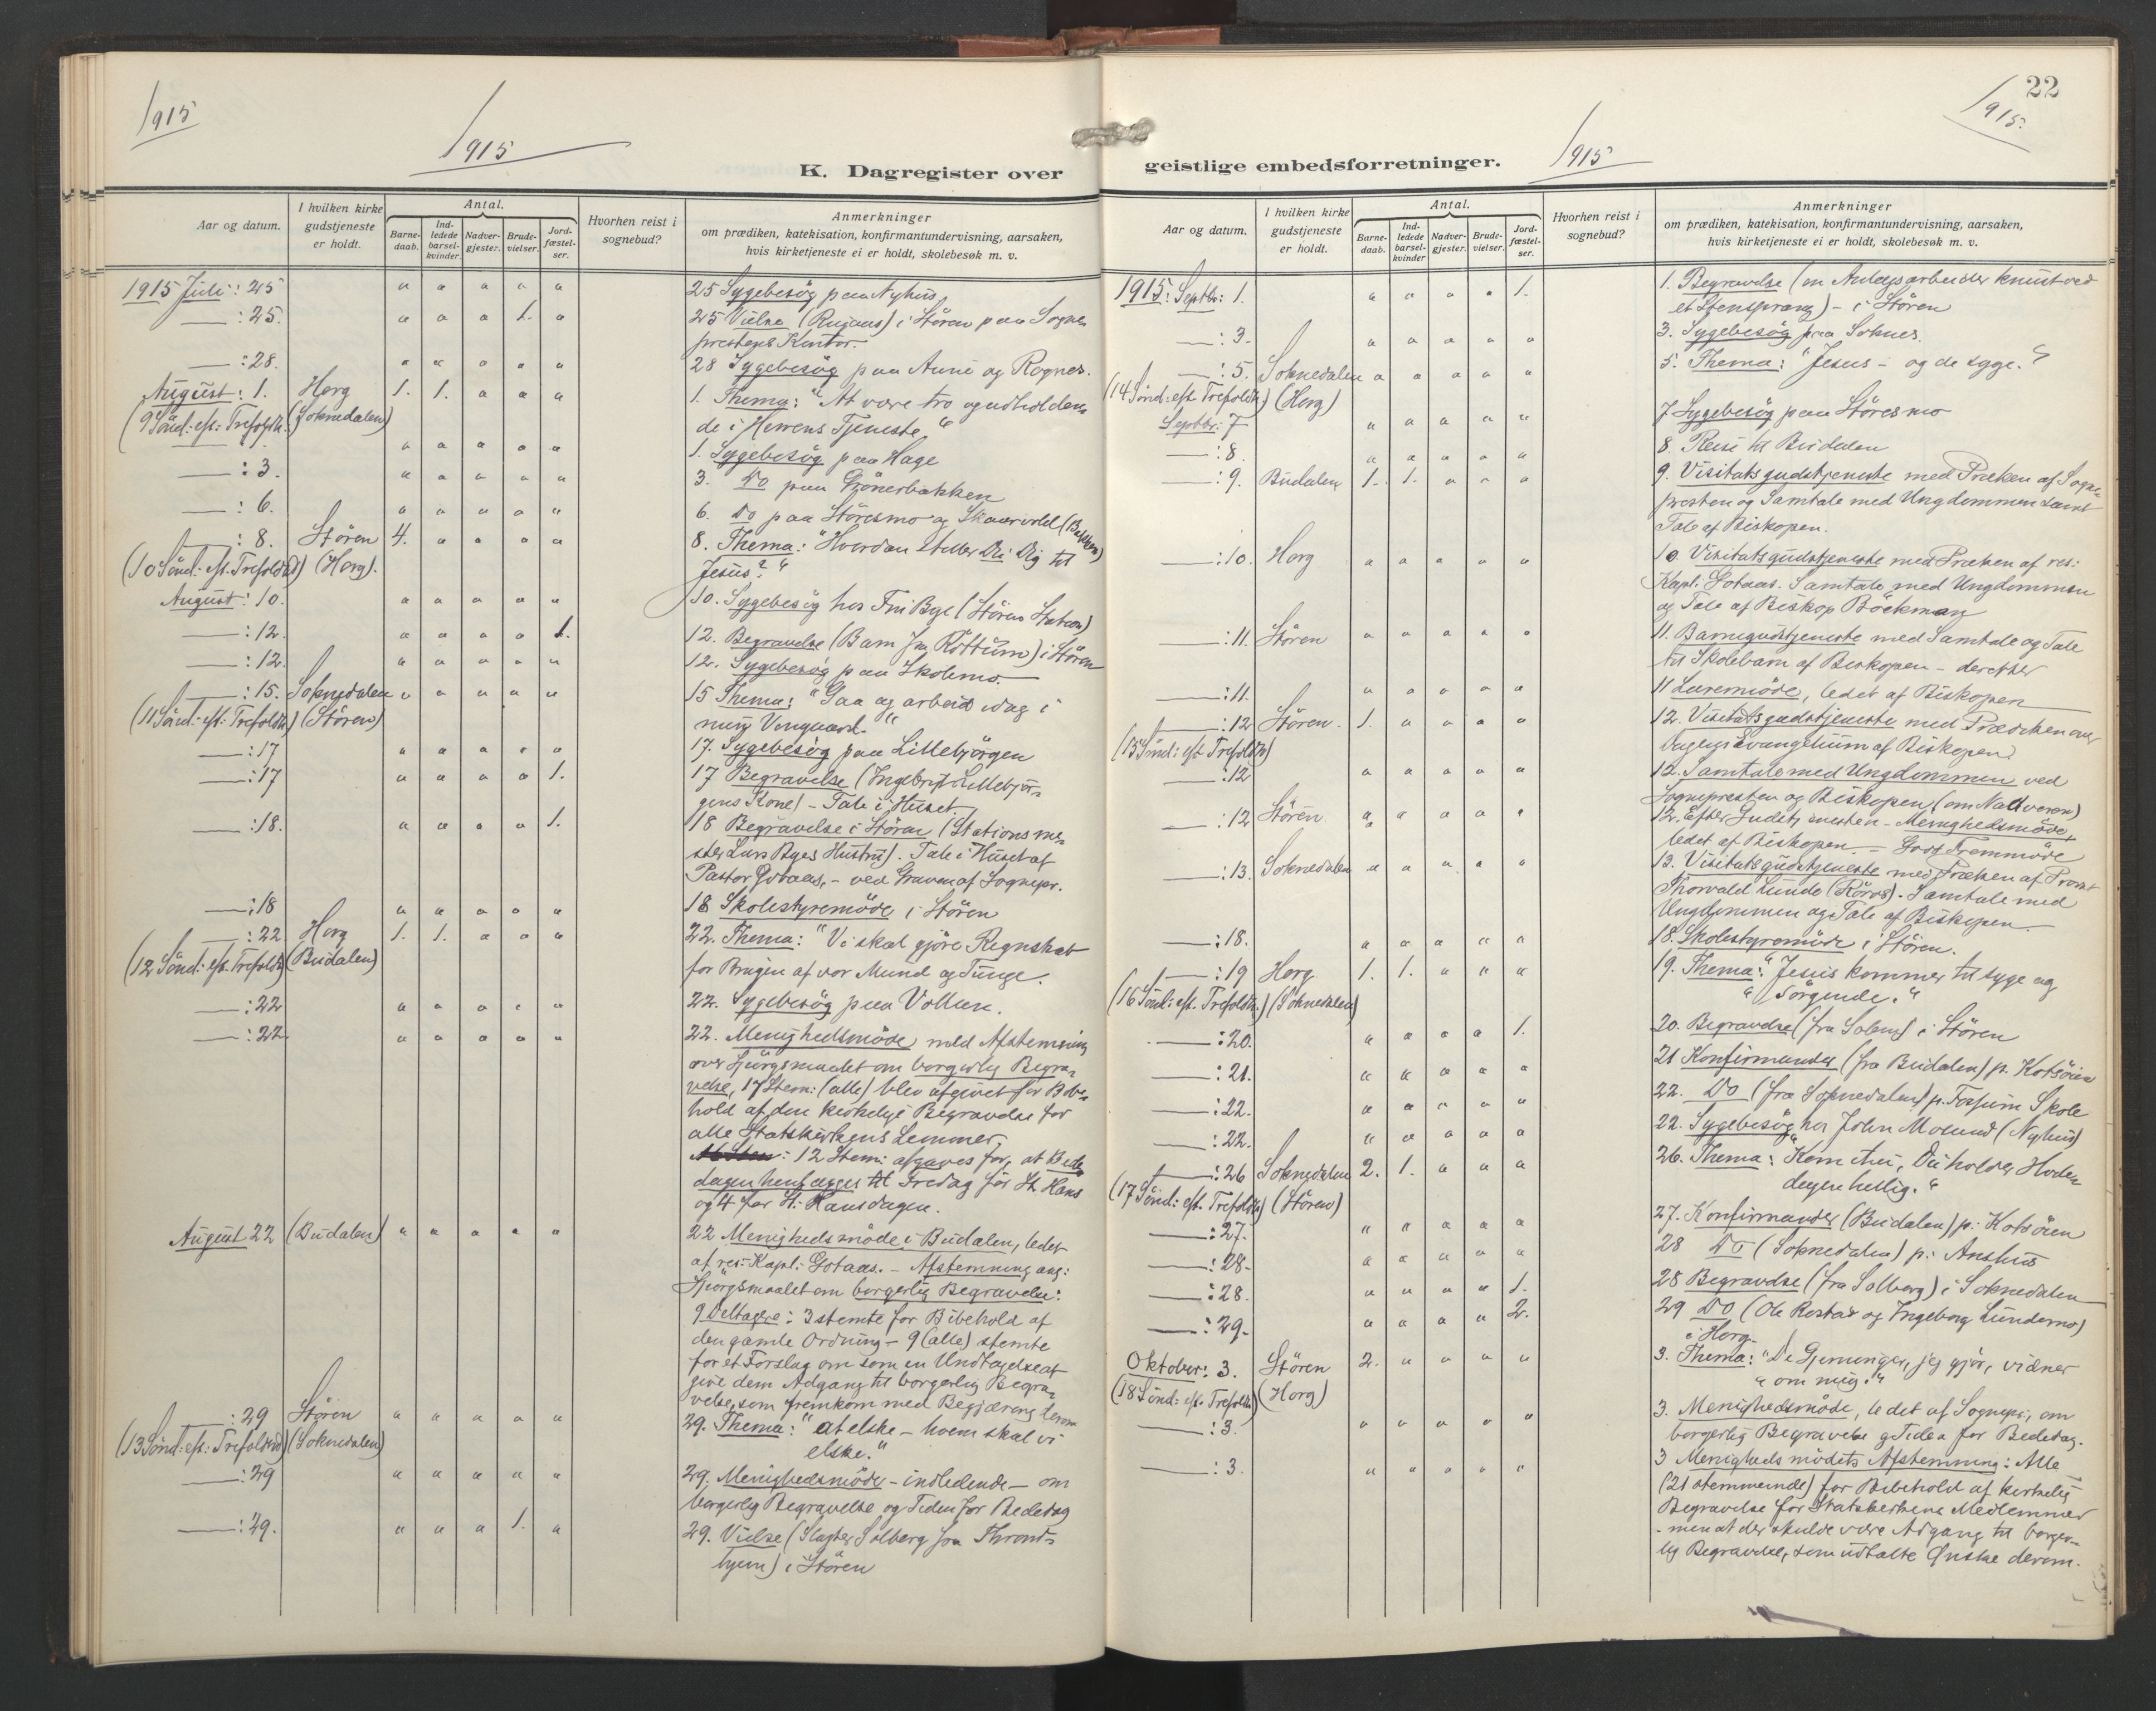 1915
1915
K. Dagregister over
Aar og datum.
I hvilken kirke
gudstjeneste
er holdt.
Antal.
Barne-
daab.
Ind-
ledede
barsel-
kvinder.
Nadver-
gjester.
Brude-
vielser.
Jord-
fæstel-
ser.
Hvorhen reist i
sognebud?
Anmerkninger
om prædiken, katekisation, konfirmantundervisning, aarsaken,
hvis kirketjeneste ei er holdt, skolebesøk m. v.
1915 Juli: 25 " " " " " 25 Sygebesøg paa Nyhus
—: 25. " " " 1. " 25 Vielse (Rugaas) i Støren paa Sogne-
prestens Kontor.
—: 28. " " " " " 28 Sygebesøg paa Aune og Rognes.
August: 1. Horg 1. 1. " " " 1. Thema: "At være tro og udholden-
(9 Sønd: eft: Trefoldh.) (Soknedalen) de i Herrens Tjeneste"
" " " " " 1. Sygebesøg paa Hage
—: 3. " " " " " 3. Do paa Grönerbakken
—: 6. " " " " " 6. Do paa Støresmo og
—: 8. Støren 4. " " " " 8. Thema: "Hvordan stiller Du Dig til
(10 Sønd: eft. Trefoldh) (Horg). Jesus?"
August: 10. " " " " " 10. Sygebesøg hos Bye (Støren Station)
—: 12. " " " " 1. 12. Begravelse (Barn fra Røttum) i Støren
—: 12. " " " " " 12. Sygebesøg paa Skolemo.
—: 15. Soknedalen " " " " " 15 Thema: "Gaa og arbeid idag i
(11 Sønd: eft: Trefoldh.) (Støren) min Vingaard."
—: 17 " " " " " 17. Sygebesøg paa Lillebjørgen
—: 17 " " " " 1. 17 Begravelse (Ingebrigt Lillebjør-
gens Kone) - Tale i Huset.
—: 18. " " " " 1. 18 Begravelse i Støren (Stationsme-
ster Lars Byes Hustru). Tale i Huset af
Pastor Gotaas, - ved Graven af Sognepr.
—: 18 " " " " " 18 Skolestyremøde i Støren
—: 22 Horg 1. 1. " " " 22. Thema: "Vi skal gjøre Regnskab
(12 Sønd: eft. Trefoldh) (Budalen) for Brugen af vor Mund og Tunge.
—: 22 " " " " " 22. Sygebesøg paa Vollum.
—: 22. " " " " " 22. Menighedsmøde med Afstemning
over Spørgsmaalet om borgerlig Begra-
velse, 17 Stem: (alle) blev afgivet for Bibe-
hold af den kirkelige Begravelse for
alle Statskirkens Lemmer,
12 Stem: afgaves for, at Bede-
dagen henlægges til Fredag før St. Hans
og 4 for St: Hansdagen.
August 22 (Budalen) " " " " " 22 Menighedsmøde i Budalen, ledet
af res: Kapl: Gotaas. - Afstemning ang:
Spørgsmaalet om borgerlig Begravelse:
9 Deltagere: 3 stemte for Bibehold af
den gamle Ordning - 9 (alle) stemte
for et Forslag om som en Undtagelse at
give dem Adgang til borgerlig Begra-
velse, som fremkom med Begjæring derom
—: 29 Støren " " " " " 29. Thema: "at elske - hvem skal vi
(13 Sønd: eft: Trefoldh) (Soknedalen) elske."
—: 29 " " " " " 29. Menighedsmøde - indledende - om
borgerlig Begravelse og Tiden for Bededag
—: 29. " " " 1. " 29. Vielse (Slagter Solberg fra Thrond-
hjem) i Støren
22
1915
1915.
geistlige embedsforretninger.
Aar og datum.
I hvilken kirke
gudstjeneste
er holdt.
Antal.
Barne-
daab.
Ind-
ledede
barsel-
kvinder
Nadver-
gjester.
Brude-
vielser.
Jord-
fæstel-
ser.
Hvorhen reist i
sognebud?
Anmerkninger
om prædiken, katekisation, konfirmantundervisning, aarsaken,
hvis kirketjeneste ei er holdt, skolebesøk m. v.
1915: Septbr: 1. " " " " 1. 1. Begravelse (en Anlægsarbeider knust ved
et Stensprang) - i Støren
—: 3. " " " " " 3. Sygebesøg paa Soknes.
—: 5. Soknedalen " " " " " 5. Thema: "Jesus - og de syge."
(14 Sønd: eft. Trefoldh.) (Horg)
Septbr: 7 " " " " " 7 Sygebesøg paa Støresmo
—: 8. " " " " " 8. Reise til Budalen
—: 9. Budalen 1. 1. " " " 9. Visitatsgudstjeneste med Præken af Sogne-
presten og Samtale med Ungdommen samt
Tale af Biskopen.
—: 10. Horg " " " " " 10 Visitatsgudstjeneste med Præken af res:
Kapl. Gotaas. Samtale med Ungdommen
og Tale af Biskop Böckman
—: 11. Støren " " " " " 11. Barnegudstjeneste med Samtale og Tale
til Skolebarn af Biskopen - derefter
—: 11. " " " " " 11 Læremøde, ledet af Biskopen
—: 12 Støren. 1. " " " " 12. Visitatsgudstjeneste med Prædiken over
(15 Sønd: eft Trefoldh) Dagens Evangelium af Biskopen
—: 12 " " " " " 12. Samtale med Ungdommen ved
Sognepresten og Biskopen (om Nadveren)
—: 12 Støren " " " " " 12. Efter Gudstjenesten - Menighedsmøde,
ledet af Biskopen. - Godt Fremmøde
—: 13. Soknedalen " " " " " 13. Visitatsgudstjeneste med Præken af Provst
Thorvald Lunde (Røros). Samtale med
Ungdommen og Tale af Biskopen.
—: 18. " " " " " 18. Skolestyremøde i Støren.
—: 19 Horg 1. 1. " " " 19. Thema: "Jesus kommer til syge og
(16 Sønd: eft. Trefoldh.) (Soknedalen) " sørgende."
—: 20. " " " " 1. 20. Begravelse i Støren
—: 21. " " " " " 21 Konfirmander (fra Budalen) p. Kotsøien
—: 22. " " " " " 22. Do (fra Soknedalen) p. Fossum Skole
—: 22. " " " " " 22. Sygebesøg hos John Mosund (Nyhus)
—: 26 Soknedalen 2. 1. " " " 26. Thema: "Kom ihu, Du holder Hvile-
(17 Sønd: eft. Trefoldh) (Støren) dagen hellig."
—: 27. " " " " " 27. Konfirmander (Budalen) p: Kotsöien
—: 28. " " " " " 28 Do (Soknedalen) p: Anshus
—: 28. " " " " 1. 28 Begravelse (fra Solberg) i Soknedalen
—: 29. " " " " 2. 29 Do (Ole Rostad og Ingeborg Lundemo)
i Horg.
Oktober: 3. Støren 2. " " " " 3. Thema: "De Gjerninger, jeg gjør, vidner
(18 Sønd: eft. Trefoldh) (Horg) " om mig."
—: 3. " " " " " 3. Menighedsmøde, ledet af Sognepr., om
borgerlig Begravelse og Tiden for Bededag.
—: 3. " " " " " 3 Menighedsmødets Afstemning: Alle
(21 stemmeinde) for Bibehold af kirkelig
Begravelse for Statskirkens Medlemmer
- men at der skulde være Adgang til borger-
lig Begravelse, som udtalte Ønske derom.